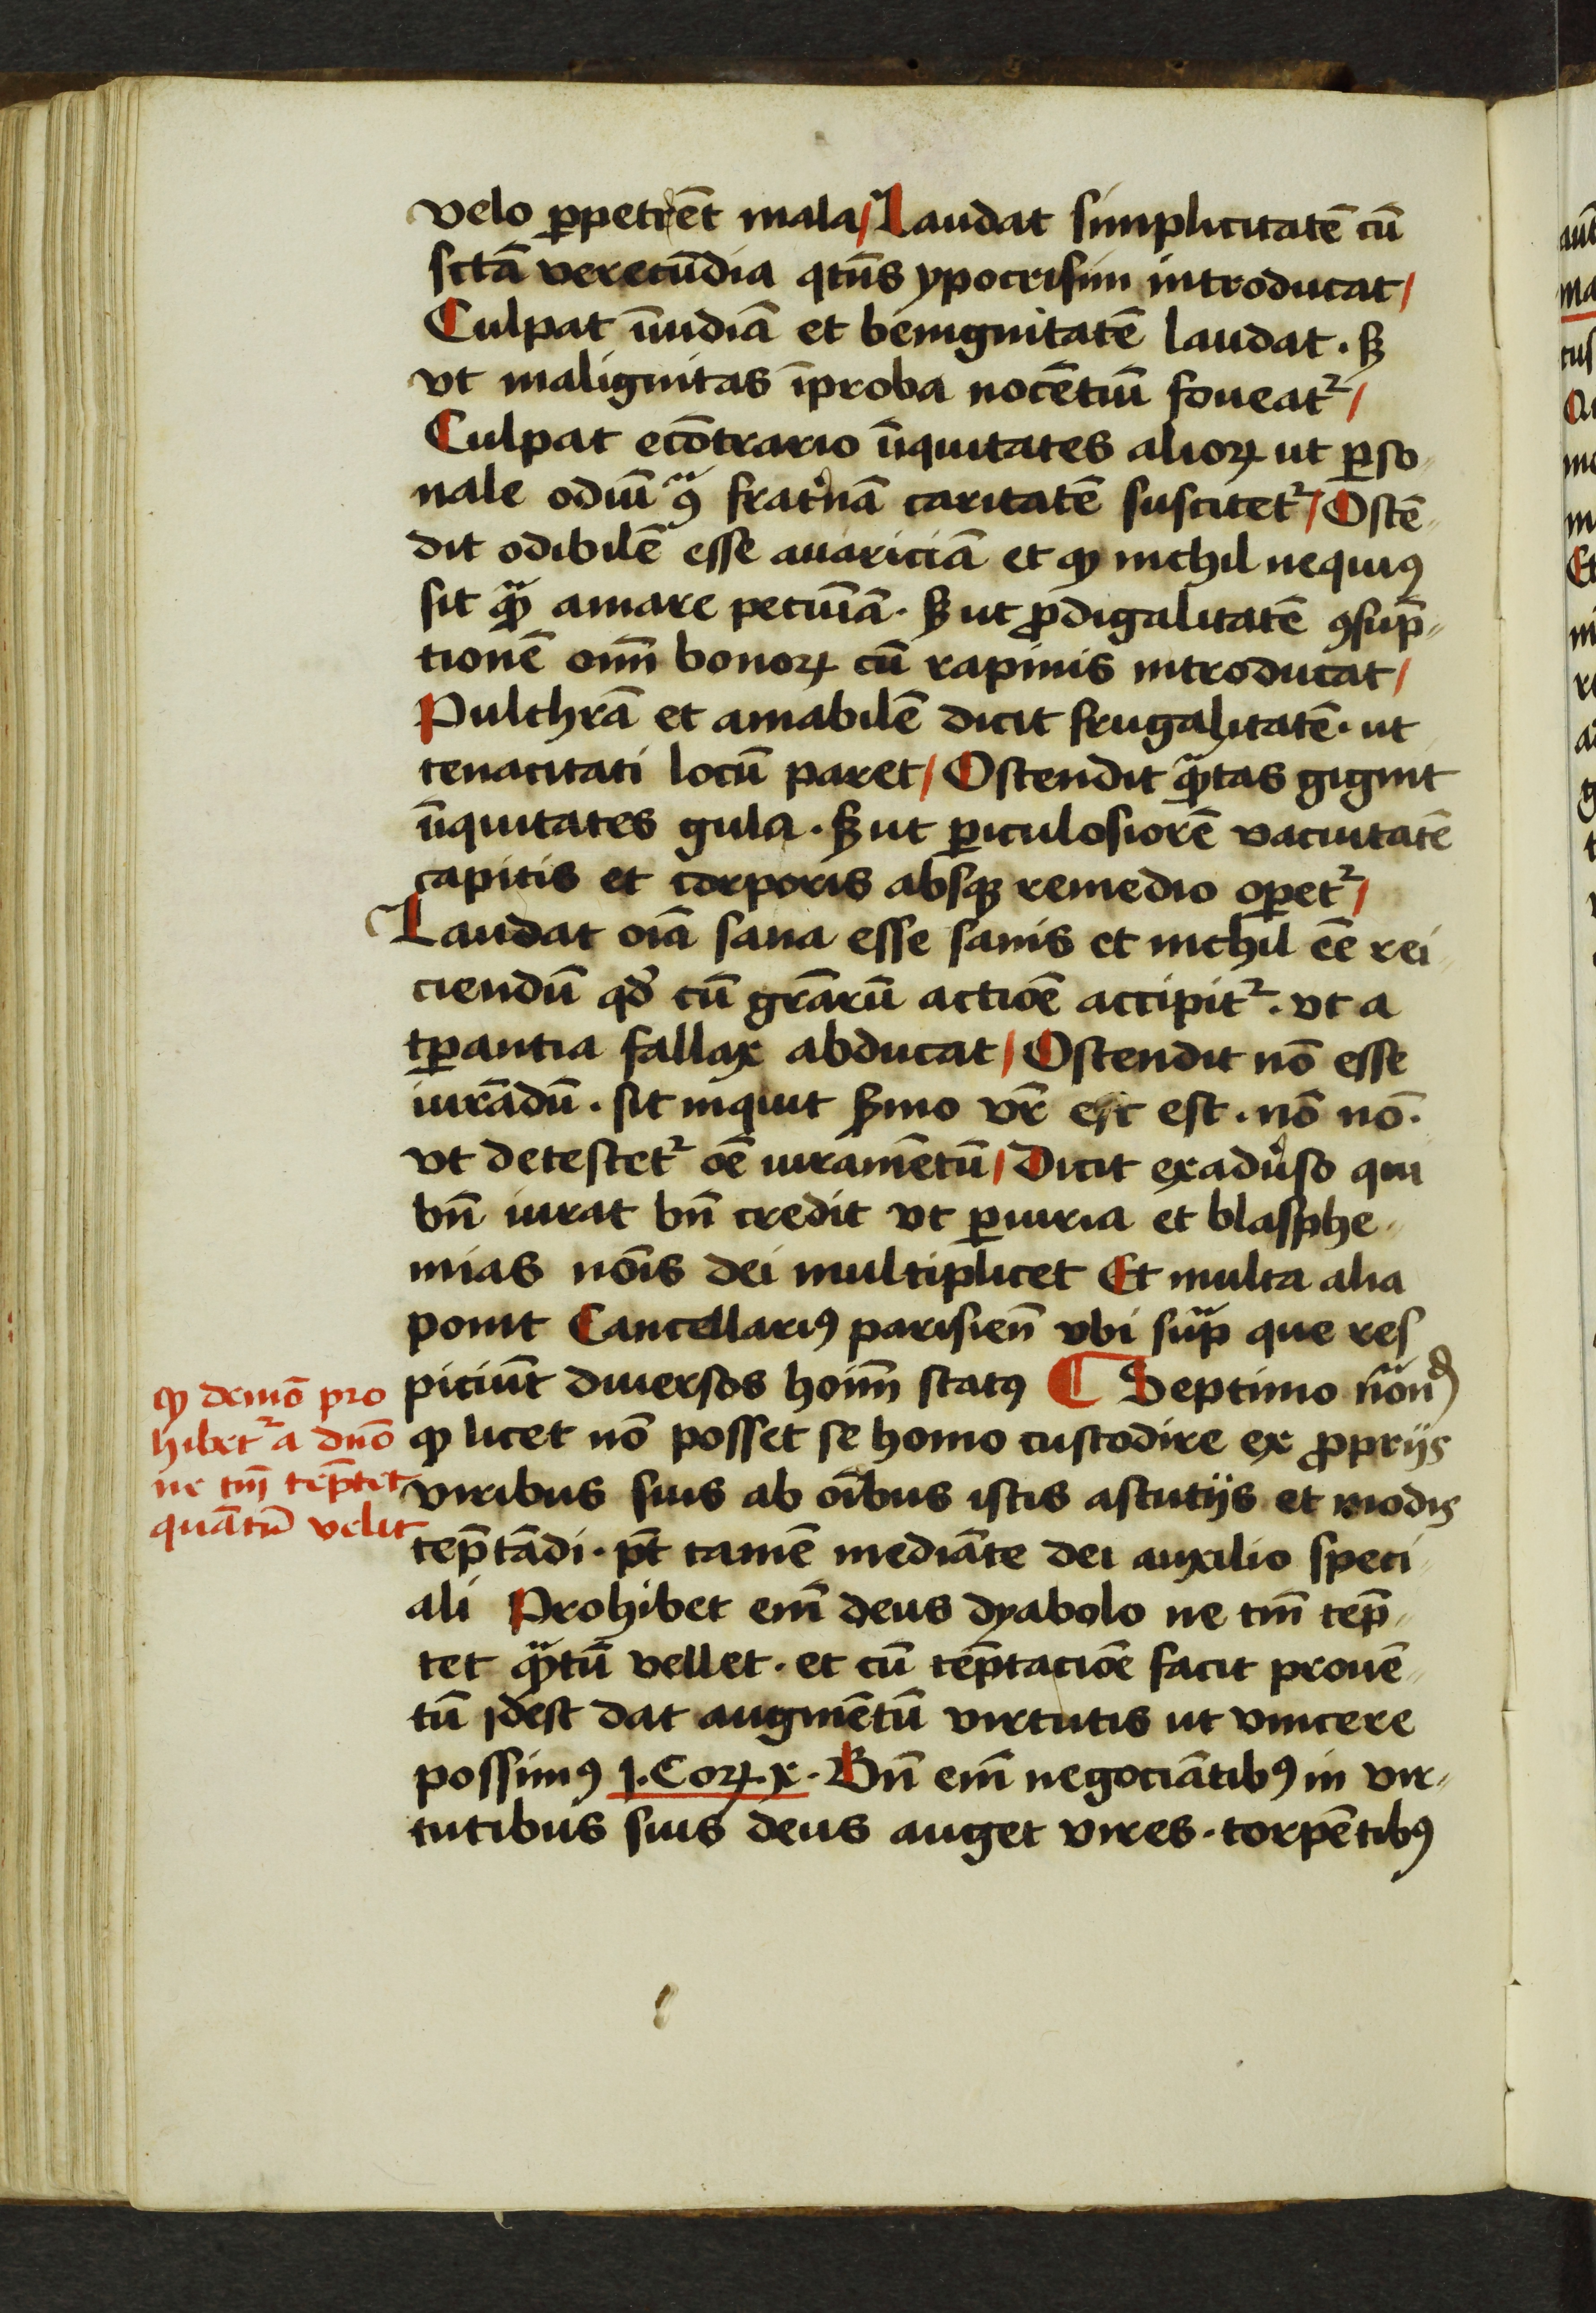 velo ꝑpetrēt mala / Laudat simplicitatē cū
sctā verecūdia qtn̄s ypocrisim introducat /
Culpat īuidiā et benignitatē laudat . sꝫ
vt malignitas īproba nocētiū foueat᷑ /
Culpat ecōtrario īiquitates alioꝝ ut ꝑso
nale odiū ꝯᷓ frat͛nā caritatē suscitet᷑ / Ostē
dit odibilē esse auariciā et ꝙ nichil nequiꝰ
sit qᷓꝫ amare pecuniā . sꝫ ut ꝓdigalitatē ꝯsūp
tionē om̄ bonoꝝ cū rapinis introducat /
Pulchrā et amabilē dicit frugalitatē . ut
tenacitati locū paret / Ostendit qᷓꝫtas gignit
īiquitates gula . sꝫ ut ꝑiculosiorē vacuitatē
capitis et corporis absqꝫ remedio oꝑet᷑ /
Laudat oīa sana esse sanis et nichil eē rei
ciendū qď cū gr̄arū actiōe accipit᷑ . vt a
tꝑantia fallax abducat / Ostendit nō esse
iurādū . sit inquit ẜmo vr̄ est est . nō nō .
vt detestet᷑ oē iuramētū / Dicit exadu͛so qui
bn̄ iurat bn̄ credit vt ꝑiuria et blasphe
mias nōis dei multiplicet Et multa alia
ponit Cancellariꝰ parisien̄ vbi supᷓ que res
piciūt diuersos hoīm statꝰ ¶ Septimo nōᷓnd
ꝙ licet nō posset se homo custodire ex ꝓprijs
viribus suis ab oībus istis astutijs et modis
tēptādi . pt̄ tamē mediāte dei auxilio speci
ali Prohibet em̄ deus dyabolo ne tm̄ tēp
tet qᷓꝫtū vellet . et cū tēptaciōe facit prouē
tū idest dat augmētū virtutis ut vincere
possimꝰ 1 . Coꝝ . x . Bn̄ em̄ negociātibꝰ in vir
tutibus suis deus auget vires . torpētibꝰ
ꝙ demō pro
hibet᷑ a dn̄o
ne tm̄ tēptet
quātū velit